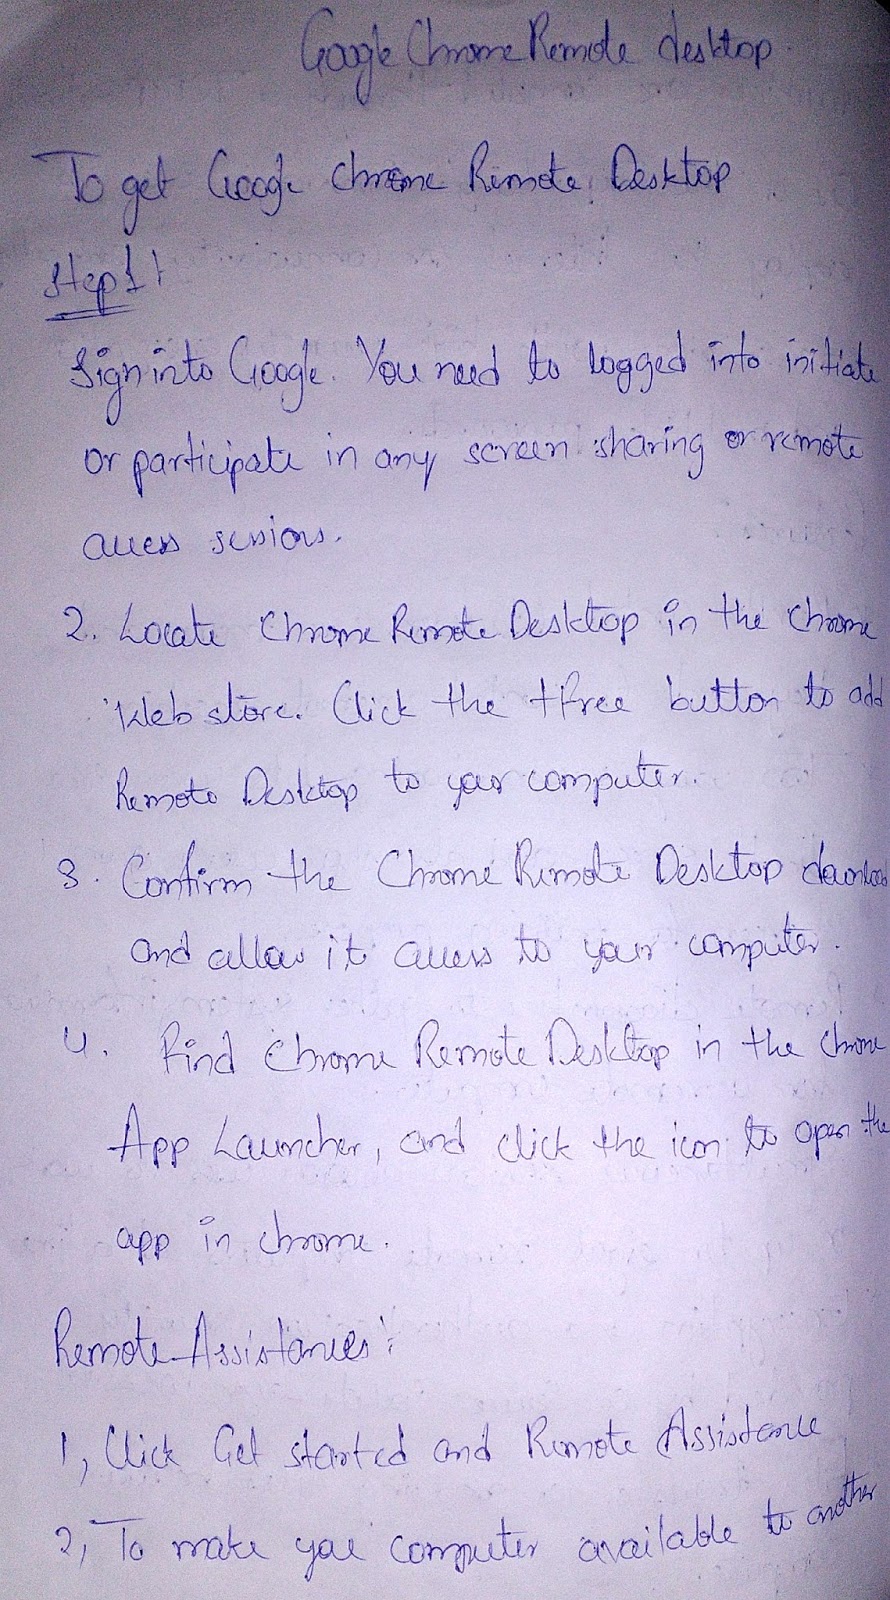 Google Chrome Remote desktop.
To get Google Chrome Remote Desktop
Step 1!
Sign into Google. You need to logged into initiate
or participate in any screen sharing or remote
access sessions.
2. Locate Chrome Remote Desktop in the Chrome
Web store. Click the +free button to add
Remote Desktop to your computer.
3. Confirm the Chrome Remote Desktop download
and allow it access to your computer.
4. Find Chrome Remote Desktop in the Chrome
App Launcher, and click the icon to open the
app in chrome.
Remote Assistances:
1, Click Get started and Remote Assistance
2, To make you computer available to another